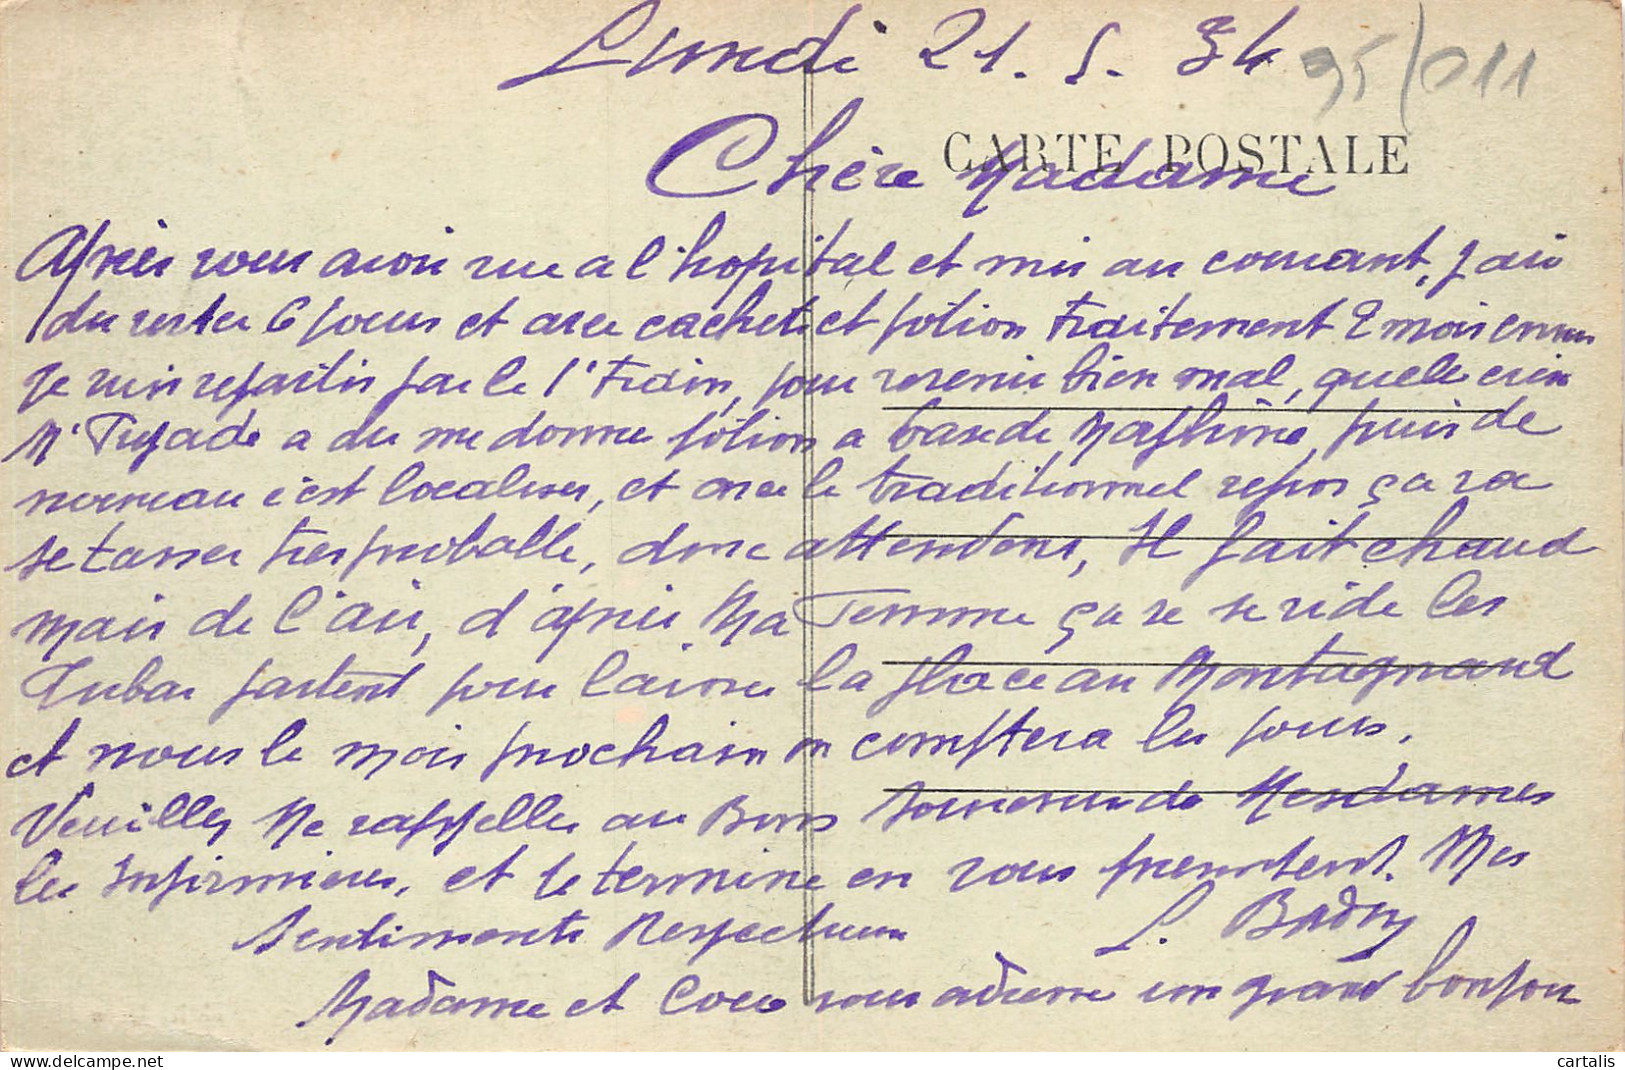 Lundi 21.5.34
95/011
CARTE POSTALE
Chère Madame
Après vous avoir vue a l'hopital et mis au courant, j'ai
du rester 6 jours et avec cachets et potion traitement 2 mois
Je suis repartis par le 1er Train, pour revenir bien mal, quelle
Mr a du me donner potion a base de Morphine, puis de
nouveau c'est localiser, et avec le traditionnel repos ça va
se tasser tres probable, donc attendons, Il fait chaud
mais de l'air, d'après Ma Femme ça se vide les
partent pour laisser la place au Montagnard
et nous le mois prochain on comptera les jours.
Veuillez Me rappeller au Bons souvenir de Mesdames
les Infirmieres, et je termine en vous presentent. Mes
Sentiments Respectueux L.
Madame et Coco vous adresse un grand bonjour
cartalis